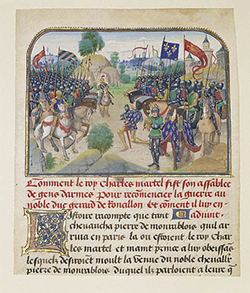 Comment le roy Charles martel fist son assablee
de gens darmes pour recomencier la guerre au
noble duc gerard de Roussillon et coment il luy en
Istoire racompte que tant
chevaucha pierre de monrablois quil ar
riva en paris la ou estoient le roy Char
les martel et maint prince a luy obeissas
lesquelz desiroient moult la venue du noble chevalier
pierre de monrablois duquel ilz parloient a leure q